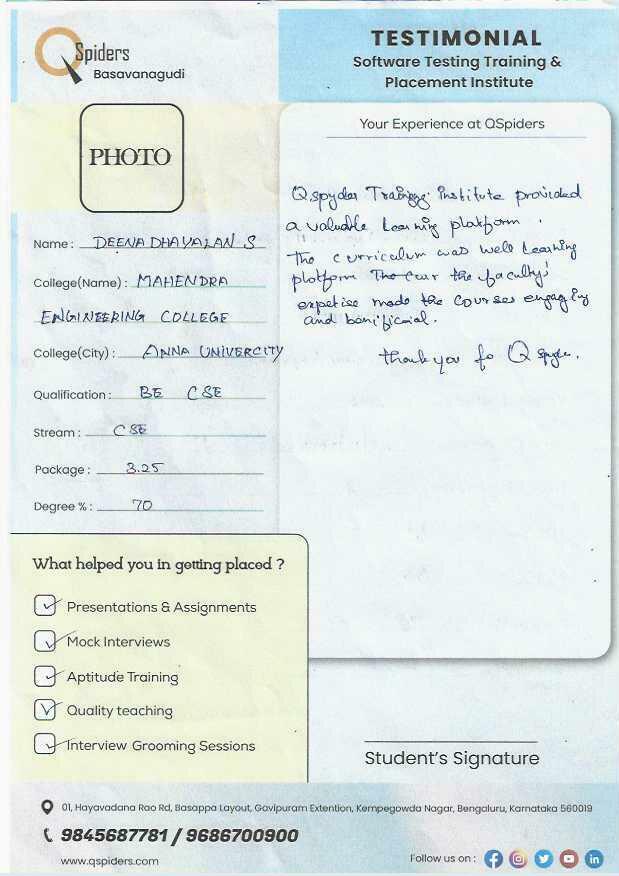 QSpiders
Basavanagudi
TESTIMONIAL
Software Testing Training &
Placement Institute
PHOTO
Name : DEENA DHAYALAN S
College(Name) : MAHENDRA
ENGINEERING COLLEGE
College(City) : ANNA UNIVERCITY
Qualification : BE CSE
Stream : CSE
Package : 3.25
Degree % : 70
Your Experience at QSpiders
Q.spyder Training institute provided
a valuable Learning platform .
The curriculum was well Learning
platform The cour the faculty's
expetise made the courses engaging
and bonificial.
Thank you fo Q spyder.
What helped you in getting placed ?
Presentations & Assignments
Mock Interviews
Aptitude Training
Quality teaching
Interview Grooming Sessions
Student's Signature
01, Hayavadana Rao Rd, Basappa Layout, Gavipuram Extention, Kempegowda Nagar, Bengaluru, Karnataka 560019
9845687781 / 9686700900
www.qspiders.com
Follow us on :